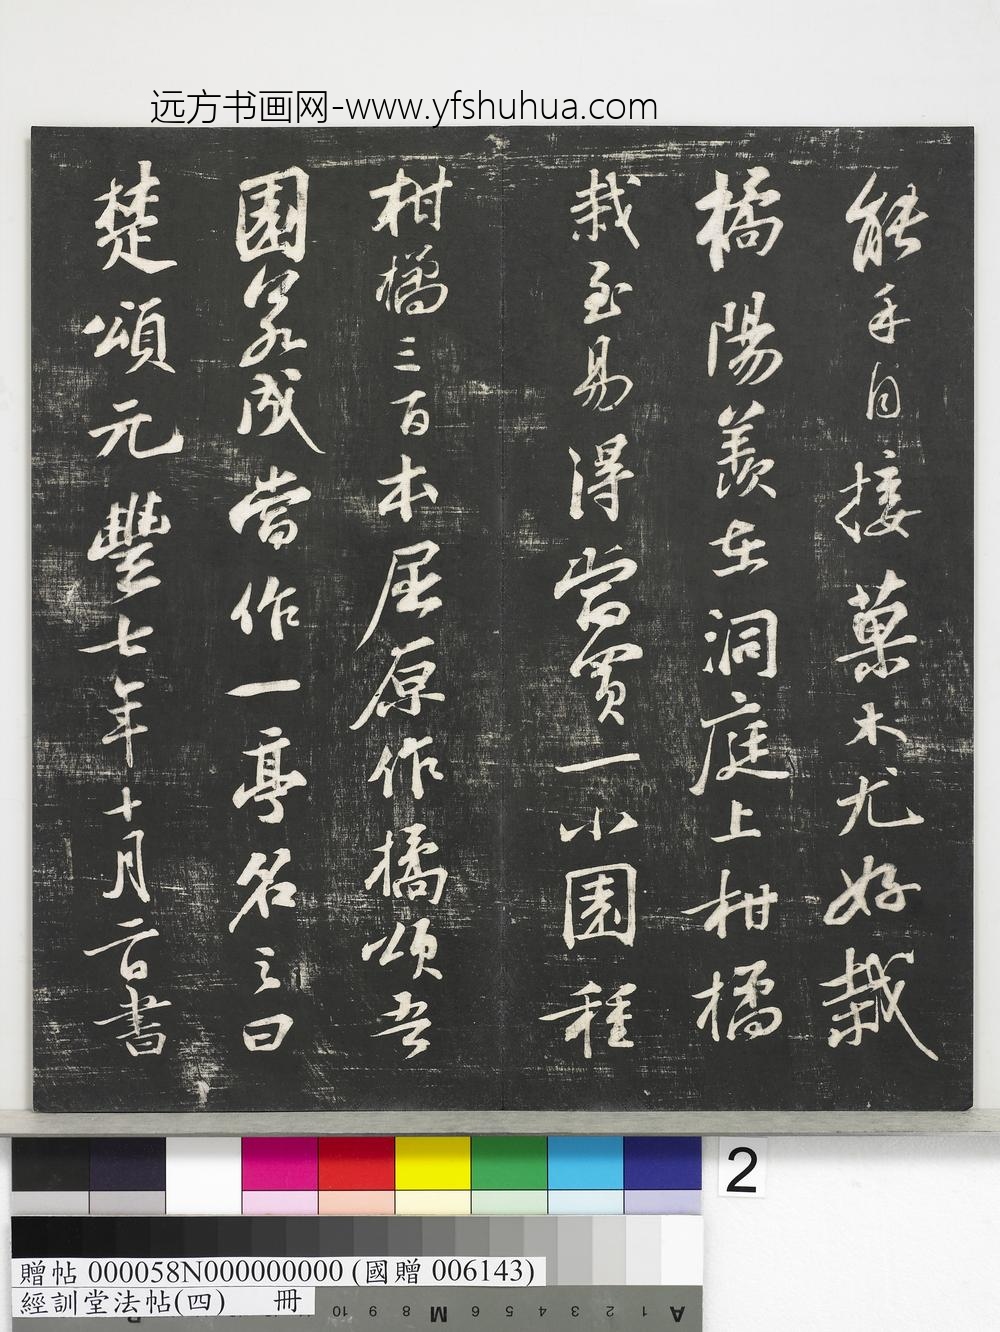 远方书画网-www.yfshuhua.com
能手自接菓木尤好栽
橘陽羨在洞庭上柑橘
栽至易得當買一小園種
柑橘三百本屈原作橘頌吾
園若成當作一亭名之曰
楚頌元豐七年十月二日書
2
贈帖 000058N000000000 (國贈 006143)
經訓堂法帖(四) 冊